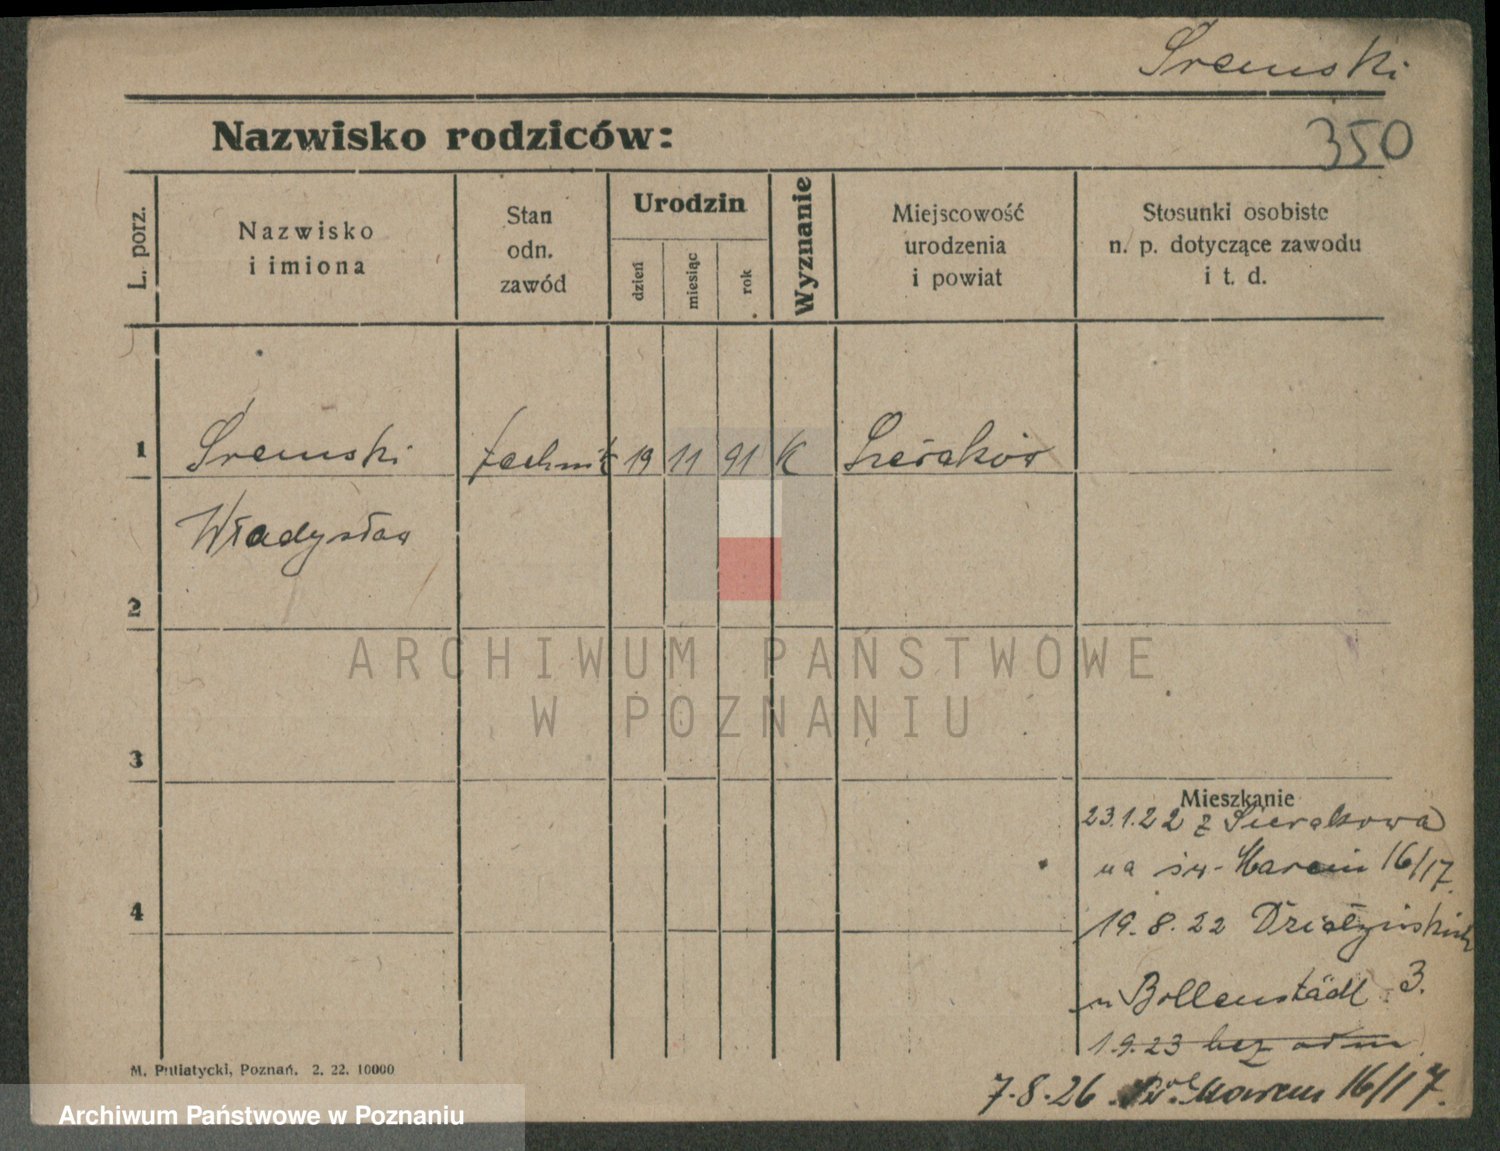 Śremski
350
Nazwisko rodziców:
L. porz.
Nazwisko
i imiona
Stan
odn.
zawód
Urodzin
dzień
miesiąc
rok
Wyznanie
Miejscowość
urodzenia
i powiat
Stosunki osobiste
n. p. dotyczące zawodu
i t. d.
1 Śremski technik 19 11 91 K Sieraków
Władysław
2
ARCHIWUM PAŃSTWOWE
W POZNANIU
3
Mieszkanie
23.1.22 z Sierakowa
na św. Marcin 16/17
4
19.8.22 Działyńskich
u Bollenstädt 3.
1.9.23 bez odm
7.8.26 Marcin 16/17.
M. Putiatycki, Poznań. 2. 22. 10000
Archiwum Państwowe w Poznaniu